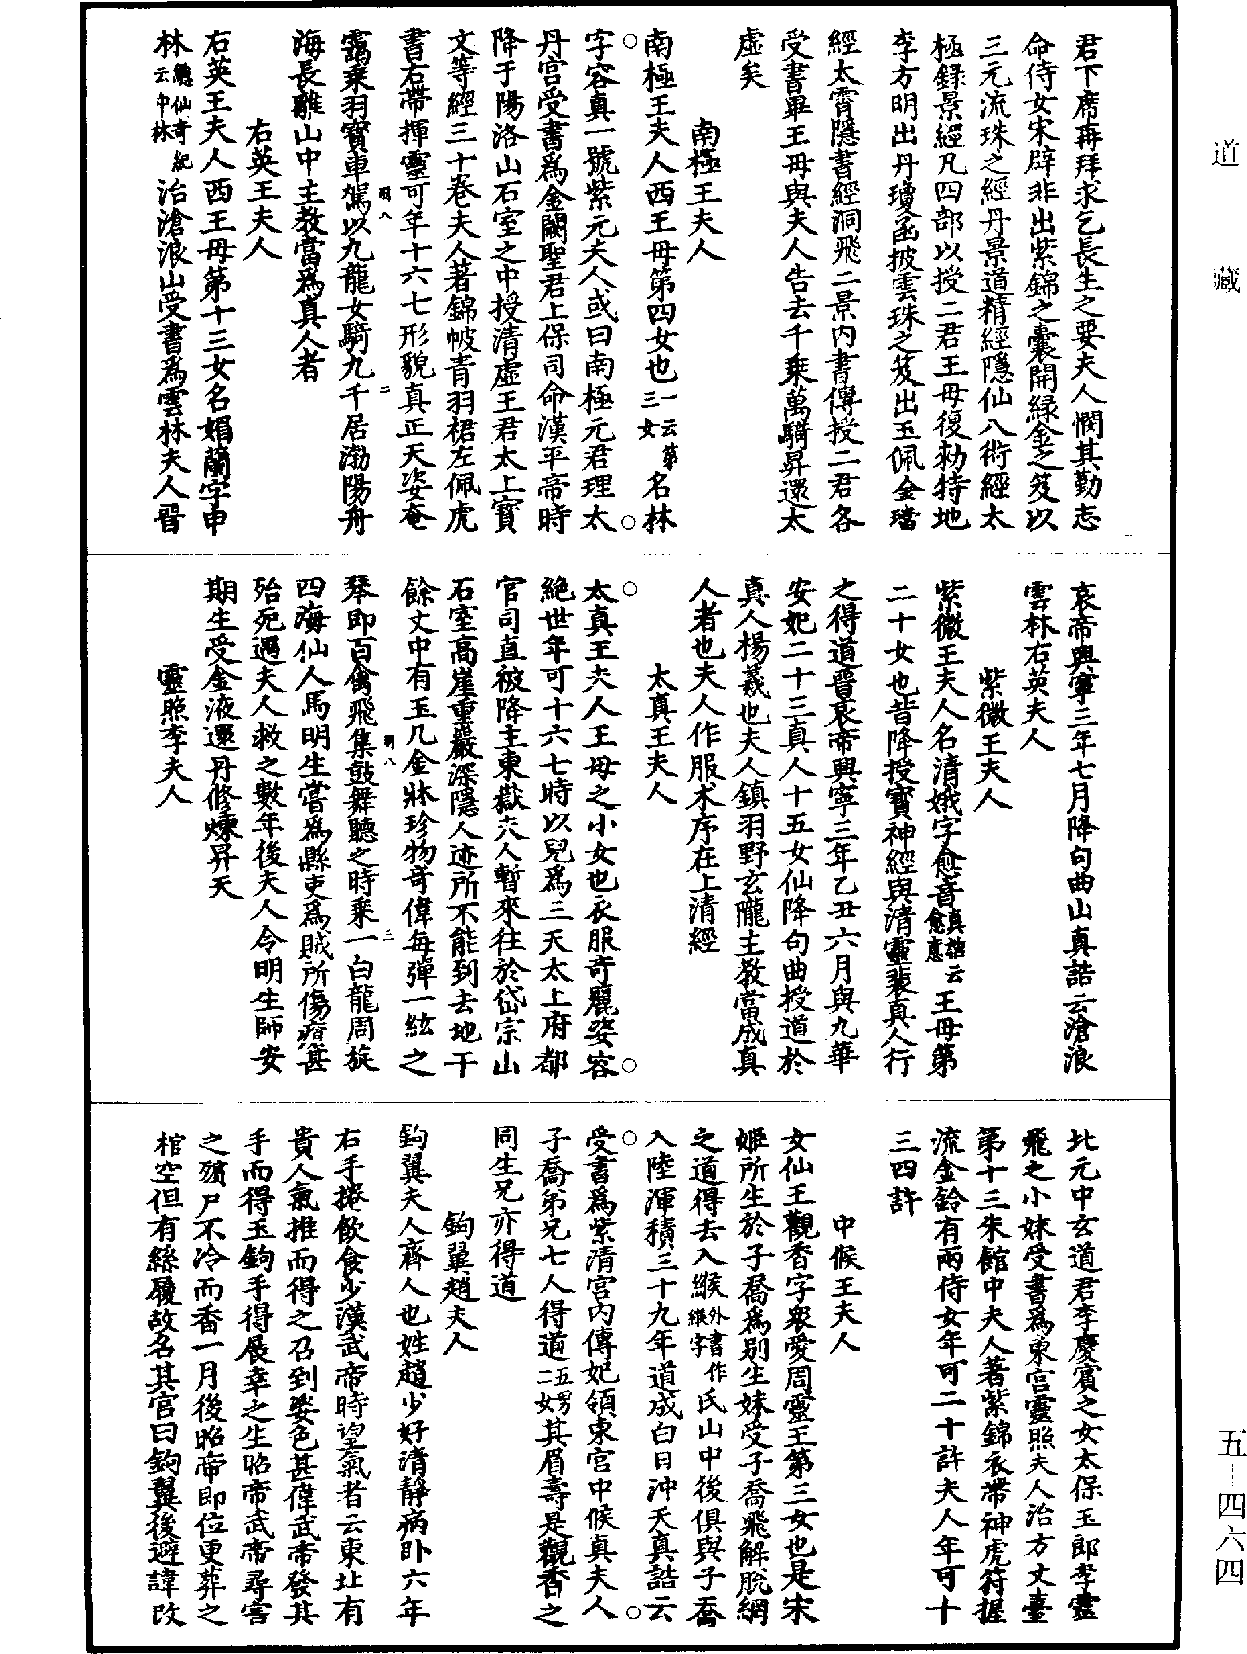 道藏
君下席再拜求乞長生之要夫人憫其勤志
命侍女宋辟非出紫錦之囊開緑金之笈以
三元流珠之經丹景道精經隱仙八術經太
極録景經凡四部以授二君王母復勑侍地
李方明出丹瓊函披雲珠之笈出玉佩金璫
經太霄隱書經洞飛二景内書傳授二君各
受書畢王母與夫人告去千乗萬騎昇還太
虚矣
南極王夫人
南極王夫人西王母第四女也一云第三女名林
字容真一號紫元夫人或曰南極元君理太
丹宫受書爲金闕聖君上保司命漢平帝時
降于陽洛山石室之中授清虚王君太上寳
文等經三十卷夫人著錦帔青羽裙左佩虎
書右帶揮靈可年十六七形貌真正天姿奄
明八 二
靄乗羽寳車駕以九龍女騎九千居渤陽丹
海長離山中主教當爲真人者
右英王夫人
右英王夫人西王母第十三女名媚蘭字申
林總仙奇紀云中林治滄浪山受書爲雲林夫人晋
哀帝興寧三年七月降句曲山真誥云滄浪
雲林右英夫人
紫微王夫人
紫微王夫人名清娥字愈音真誥云愈意王母第
二十女也昔降授寳神經與清靈裴真人行
之得道晋哀帝興寧三年乙丑六月與九華
安妃二十三真人十五女仙降句曲授道於
真人楊羲也夫人鎮羽野玄隴主教當成真
人者也夫人作服术序在上清經
太真王夫人
太真王夫人王母之小女也衣服奇麗姿容
絶世年可十六七時以兒爲三天太上府都
官司直被降主東嶽夫人暫來往於岱宗山
石室高崖重巖深隱人迹所不能到去地千
餘丈中有玉几金牀珍物奇偉每彈一絃之
明八 三
琴即百禽飛集鼓舞聽之時乗一白龍周旋
四海仙人馬明生嘗爲縣吏爲賊所傷瘡甚
殆死遇夫人救之數年後夫人令明生師安
期生受金液還丹修煉昇天
靈照李夫人
北元中玄道君李慶賓之女太保玉郎李靈
飛之小妹受書爲東宫靈照夫人治方丈臺
第十三朱館中夫人著紫錦衣帶神虎符握
流金鈴有兩侍女年可二十許夫人年可十
三四許
中候王夫人
女仙王觀香字衆愛周靈王第三女也是宋
姬所生於子喬爲别生妹受子喬飛解脱網
之道得去入緱外書作緱字氏山中後俱與子喬
入陸渾積三十九年道成白日沖天真誥云
受書爲紫清宫内傳妃領東宫中候真夫人
子喬弟兄七人得道五男二女其眉壽是觀香之
同生兄亦得道
鈎翼趙夫人
鈎翼夫人齊人也姓趙少好清靜病卧六年
右手捲飲食少漢武帝時望氣者云東北有
貴人氣推而得之召到姿色甚偉武帝發其
手而得玉鈎手得展幸之生昭帝武帝尋害
之殯尸不冷而香一月後昭帝即位更葬之
棺空但有絲履故名其宫曰鈎翼後避諱改
五—四六四